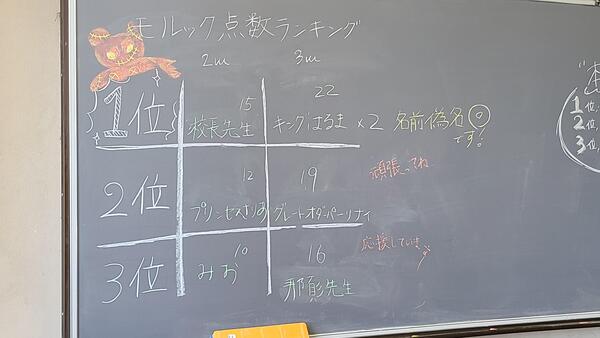 モルック点数ランキング
2m 3m
1位 15 校長先生 22 キングはるま×2 名前偽名◎です!
2位 12 プリンセスさりあ 19 グレートオダーパーリナイ 頑張ってね
3位 10 みお 16 那彪先生 応援しています
1位,
2位,
3位,